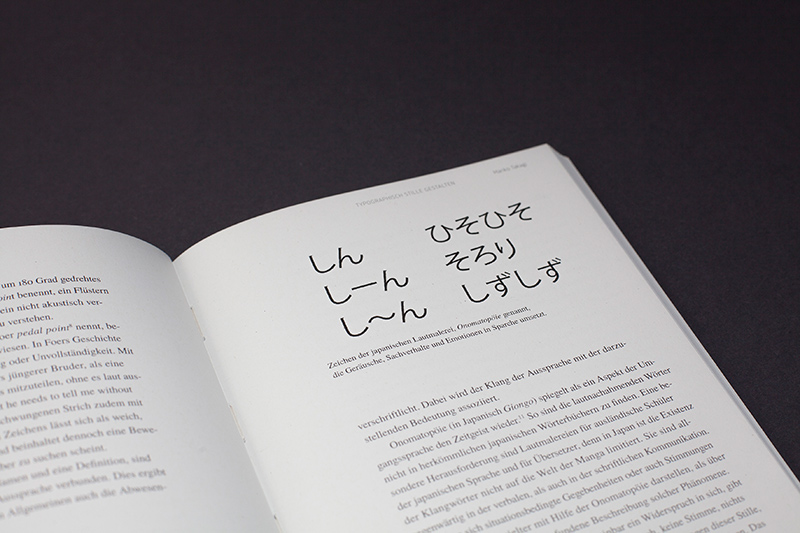 um 180 Grad gedrehtes
point benennt, ein Flüstern
ein nicht akustisch ver-
zu verstehen.
oer pedal point⁸ nennt, be-
wiesen. In Foers Geschichte
ng oder Unvollständigkeit. Mit
rs jüngerer Bruder, als eine
mitzuteilen, ohne es laut aus-
t he needs to tell me without
schwungenen Strich zudem mit
Zeichens lässt sich als weich,
nd beinhaltet dennoch eine Bewe-
ber zu suchen scheint.
amen und eine Definition, sind
Aussprache verbunden. Dies ergibt
Allgemeinen auch die Abwesen-
TYPOGRAPHISCH STILLE GESTALTEN
Mariko Takagi
しん ひそひそ
しーん そろり
し〜ん しずしず
Zeichen der japanischen Lautmalerei, Onomatopöie genannt,
die Geräusche, Sachverhalte und Emotionen in Sparche umsetzt.
verschriftlicht. Dabei wird der Klang der Aussprache mit der darzu-
stellenden Bedeutung assoziiert.
Onomatopöie (in Japanisch Giongo) spiegelt als ein Aspekt der Um-
gangssprache den Zeitgeist wieder. So sind die lautnachahmenden Wörter
nicht in herkömmlichen japanischen Wörterbüchern zu finden. Eine be-
sondere Herausforderung sind Lautmalereien für ausländische Schüler
der japanischen Sprache und für Übersetzer, denn in Japan ist die Existenz
der Klangwörter nicht auf die Welt der Manga limitiert. Sie sind all-
gegenwärtig in der verbalen, als auch in der schriftlichen Kommunikation.
sich situationsbedingte Gegebenheiten oder auch Stimmungen
mit Hilfe der Onomatopöie darstellen, als über
fundene Beschreibung solcher Phänomene.
nbar ein Widerspruch in sich, gibt
keine Stimme, nichts
dieser Stille,